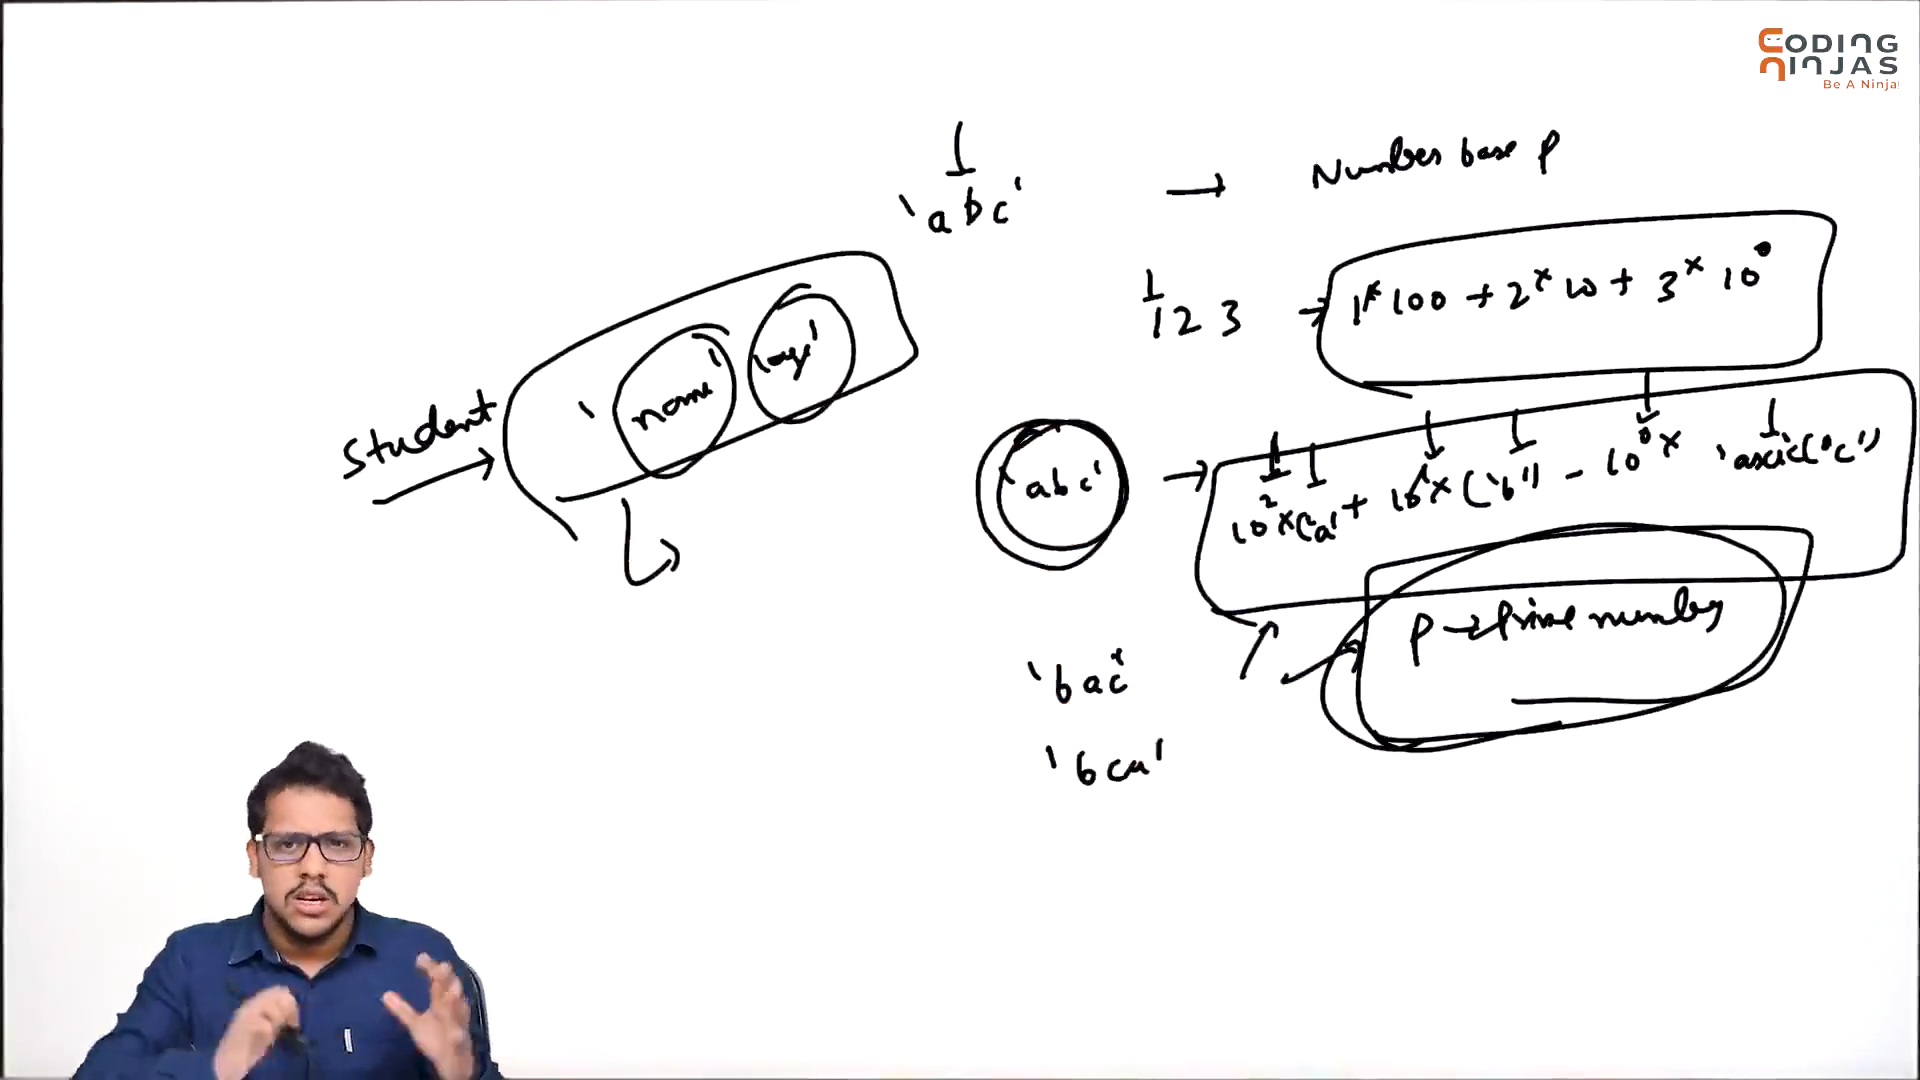 CODING
NINJAS
Be A Ninja
'abc' → Number base P
123 → 1*100 + 2*10 + 3*10⁰
Student
'name'
'abc' → 10²x('a' + 10¹x('b') - 10⁰x 'ascii('c')
P → Prime number
'bac'
'bca'